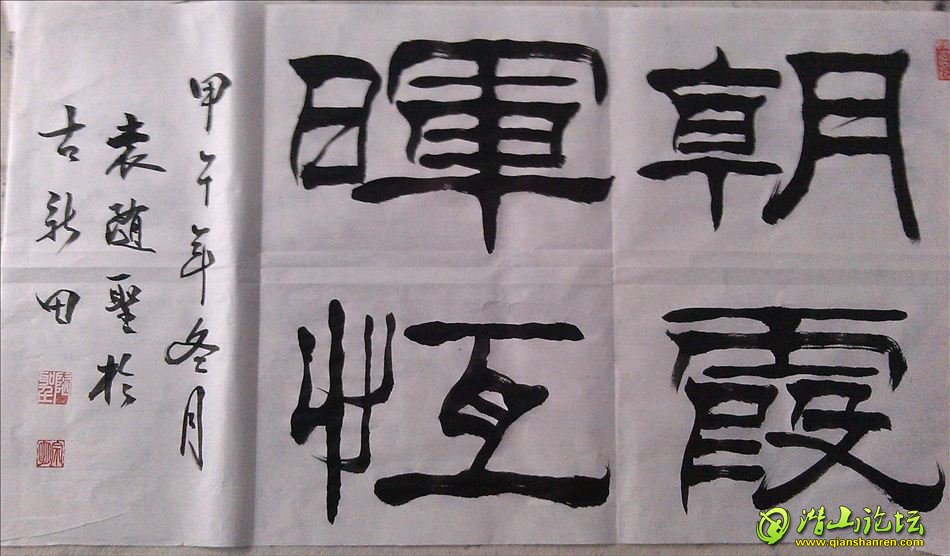 朝霞
暉恆
甲午年冬月
袁随聖於
古新田
潜山论坛
www.qianshanren.com